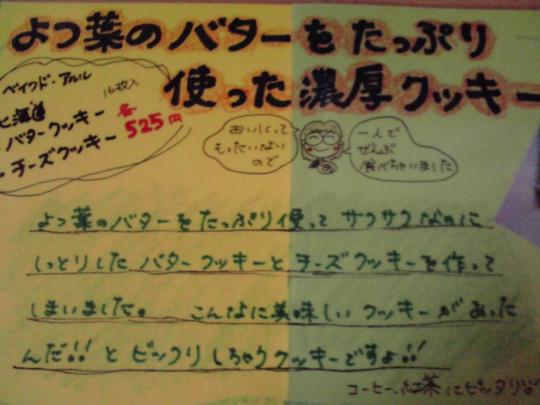 よつ葉のバターをたっぷり
使った濃厚クッキー
ベイクド・アルル
16枚入
北海道
・バタークッキー 各
・チーズクッキー 525円
おいしくって
もったいない
ので
一人で
ぜんぶ
食べちゃいました
よつ葉のバターをたっぷり使って サクサクなのに
しっとりした バタークッキーと チーズクッキーを作って
しまいました。 こんなに美味しい クッキーが あった
んだ!! と ビックリ しちゃうクッキーですよ!!
コーヒー、紅茶 にピッタリ